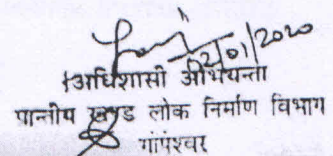 02/01/2020
अधिशासी अभियन्ता
प्रान्तीय खण्ड लोक निर्माण विभाग
गोपेश्वर